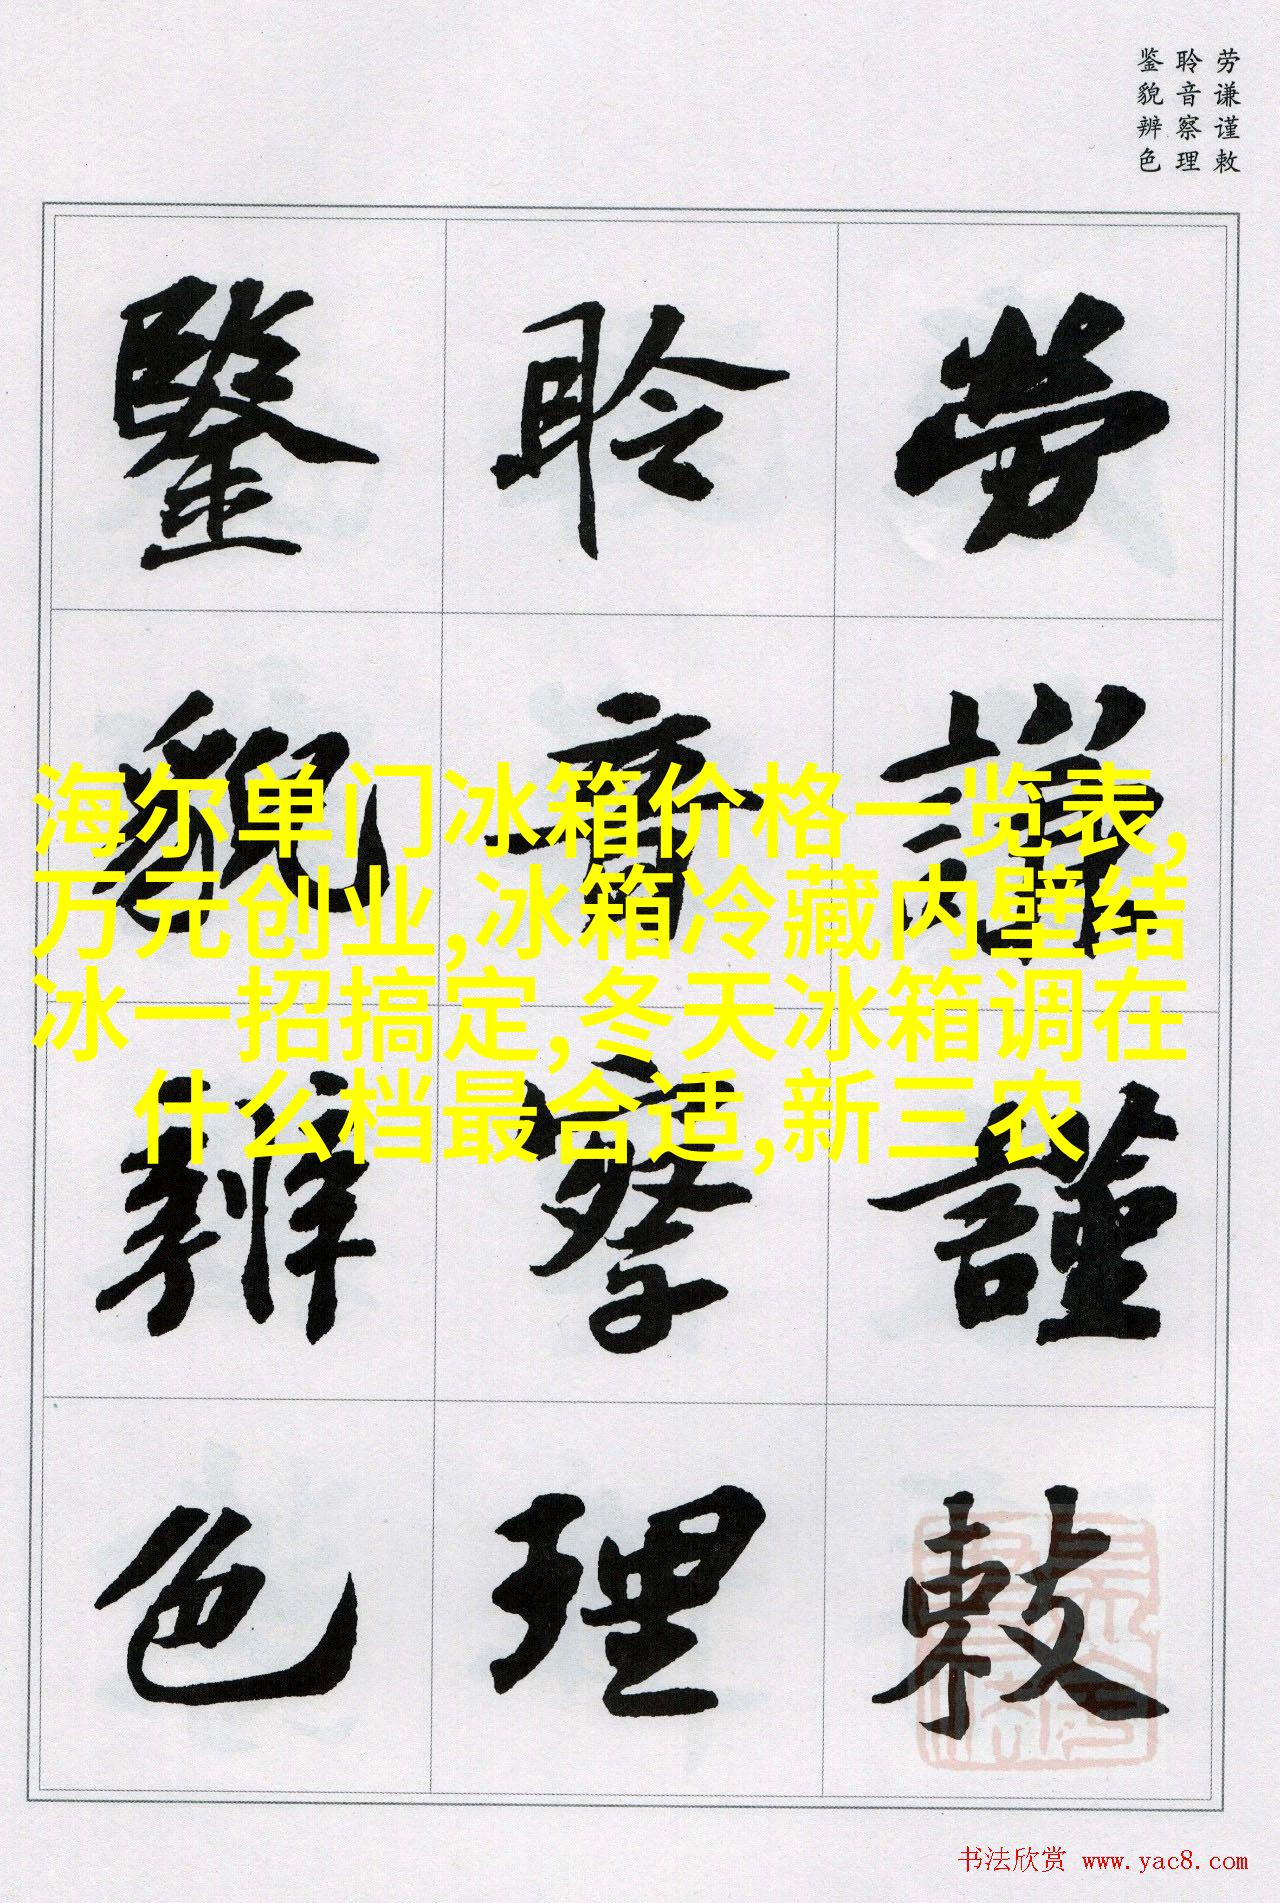 劳谦谨敕
聆音察理
鉴貌辨色
勞謙謹敕
聆音察理
鑒貌辨色
海尔单门冰箱价格一览表,
万元创业,冰箱冷藏内壁结
冰一招搞定,冬天冰箱调在
什么档最合适,新三农
书法欣赏 www.yac8.com